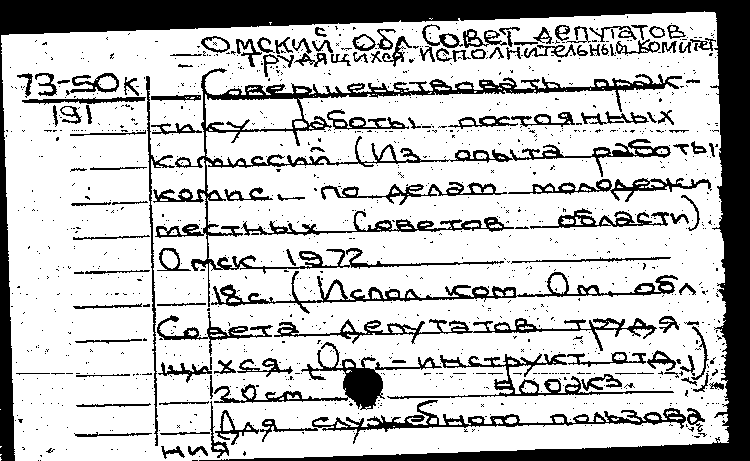 Омский обл Совет депутатов
трудящихся. исполнительный комитет
73-50к Совершенствовать прак-
191
тику работы постоянных
комиссий (Из опыта работы
комис. по делам молодежи
местных Советов области).
Омск, 1972.
18с. (Испол. ком. Ом. обл.
Совета депутатов трудя-
щихся. Орг.-инструкт. отд.)
20 см. 500экз.
Для служебного пользова
ния.